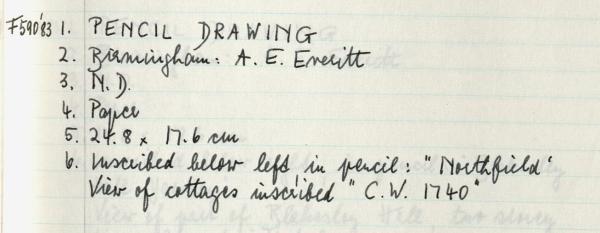 F590'83 1. PENCIL DRAWING
2. Birmingham: A. E. Everitt
3. N.D.
4. Paper
5. 24.8 x 17.6 cm
6. Inscribed below left in pencil: "Northfield"
View of cottages inscribed "C.W. 1740"